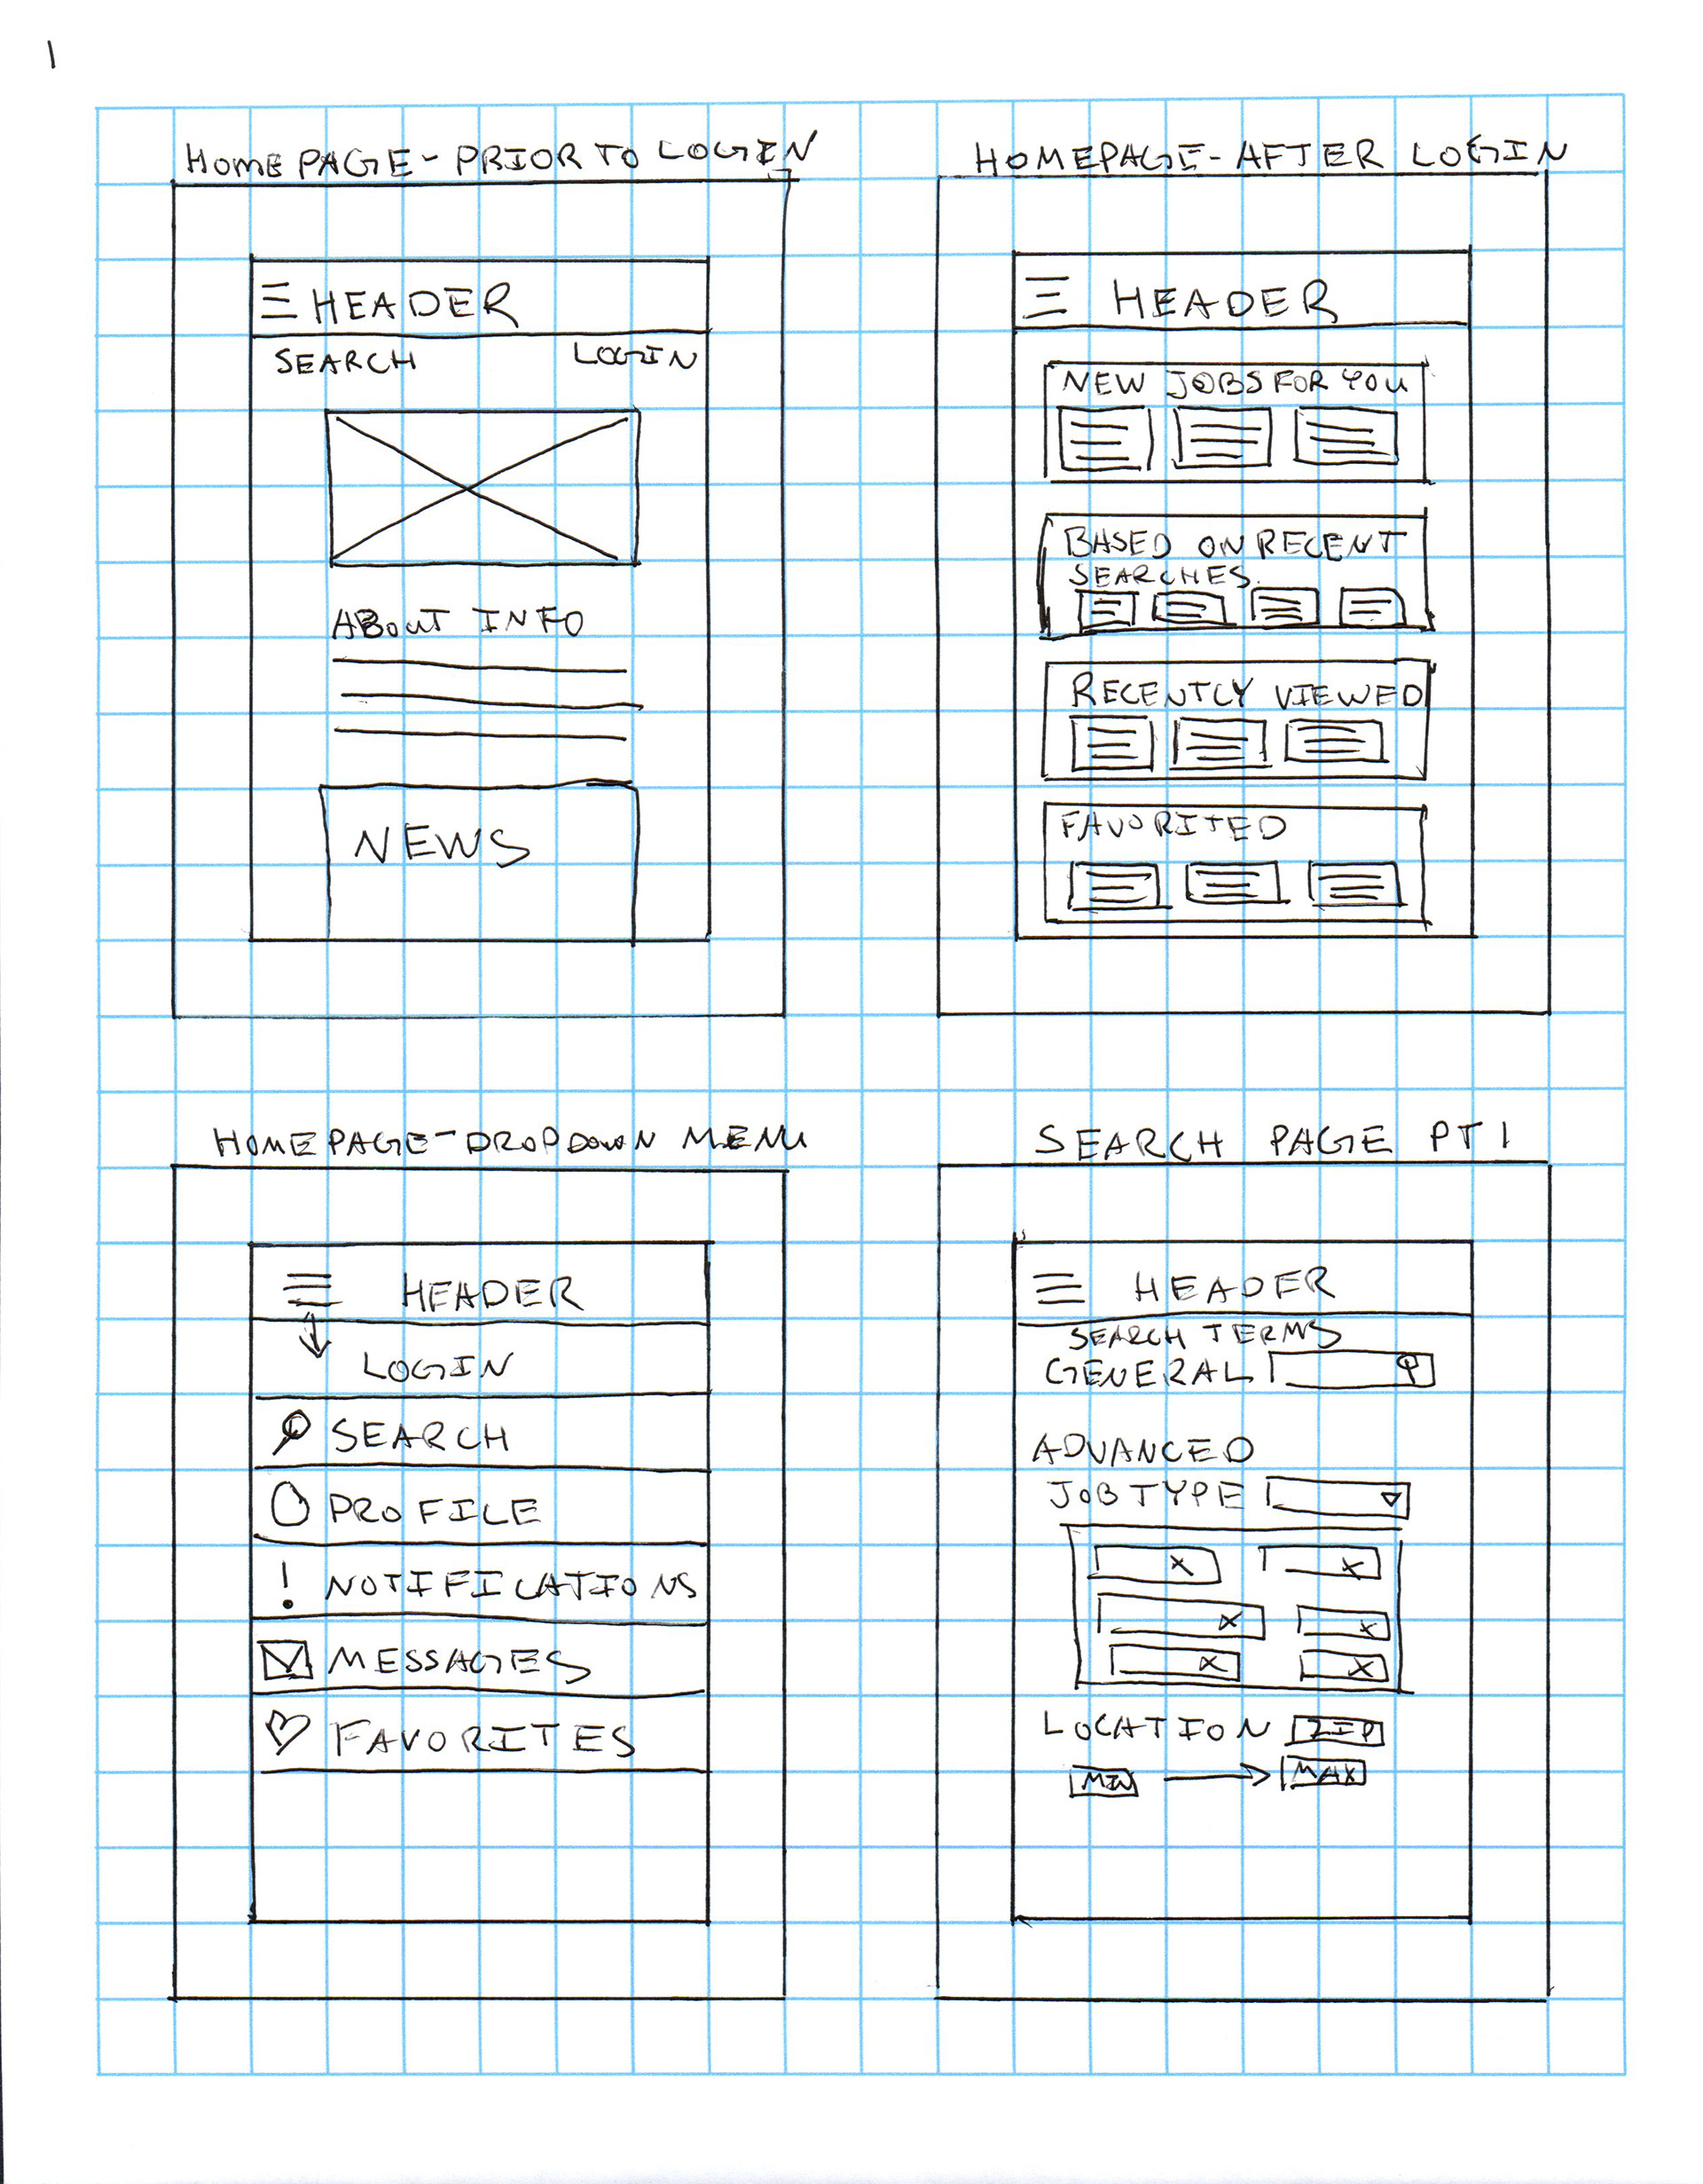 1
HOMEPAGE - PRIOR TO LOGIN
HEADER
SEARCH LOGIN
ABOUT INFO
NEWS
HOMEPAGE - AFTER LOGIN
HEADER
NEW JOBS FOR YOU
BASED ON RECENT
SEARCHES
RECENTLY VIEWED
FAVORITED
HOMEPAGE - DROPDOWN MENU
HEADER
LOGIN
SEARCH
PROFILE
! NOTIFICATIONS
MESSAGES
FAVORITES
SEARCH PAGE PT 1
HEADER
SEARCH TERMS
GENERAL
ADVANCED
JOB TYPE
X X
X X
X X
LOCATION ZIP
MIN → MAX